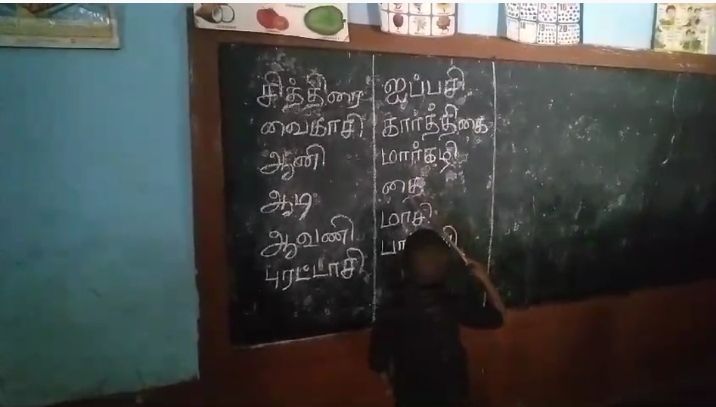 சித்திரை
வைகாசி
ஆனி
ஆடி
ஆவணி
புரட்டாசி
ஐப்பசி
கார்த்திகை
மார்கழி
தை
மாசி